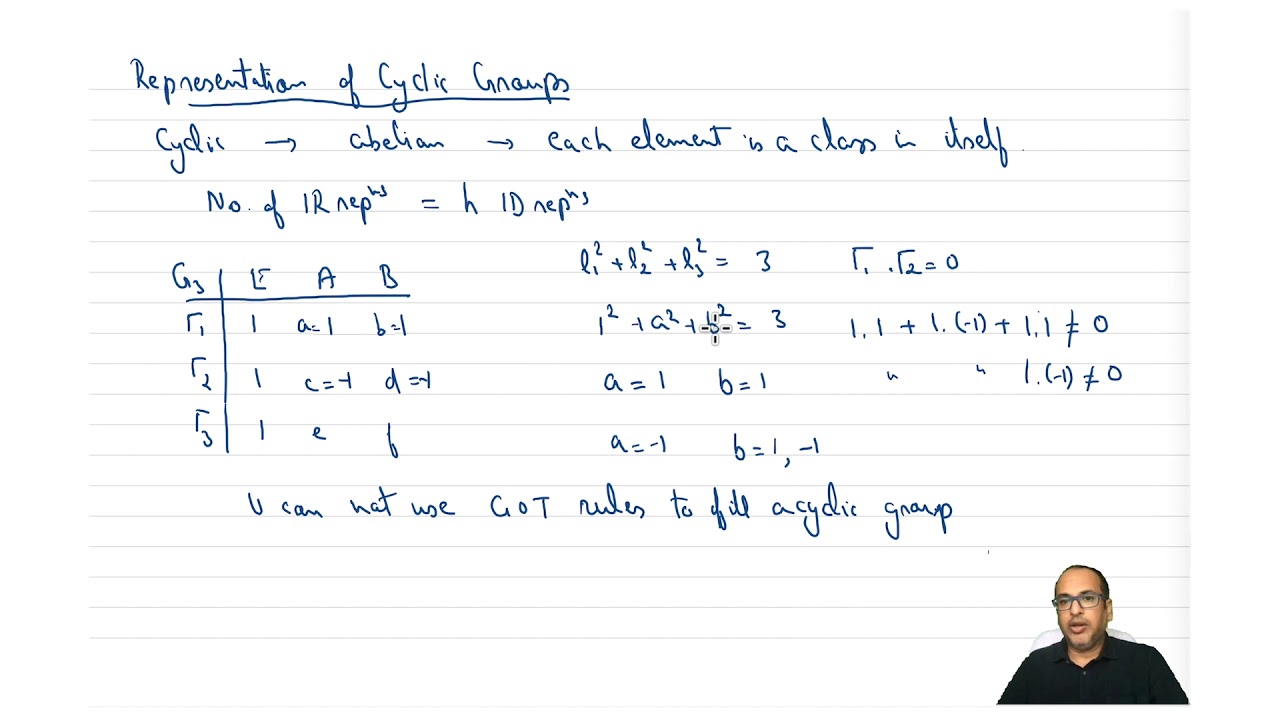 Representation of Cyclic Groups
Cyclic → abelian → each element is a class in itself.
No. of IR repⁿˢ = h 1D repⁿˢ
G₃ E A B
Γ₁ 1 a=1 b=1
Γ₂ 1 c=-1 d=-1
Γ₃ 1 e f
l₁² + l₂² + l₃² = 3
1² + a² + b² = 3
a = 1 b = 1
a = -1 b = 1, -1
Γ₁ . Γ₂ = 0
1.1 + 1.(-1) + 1.1 ≠ 0
" " 1.(-1) ≠ 0
U can not use GOT rules to fill a cyclic group